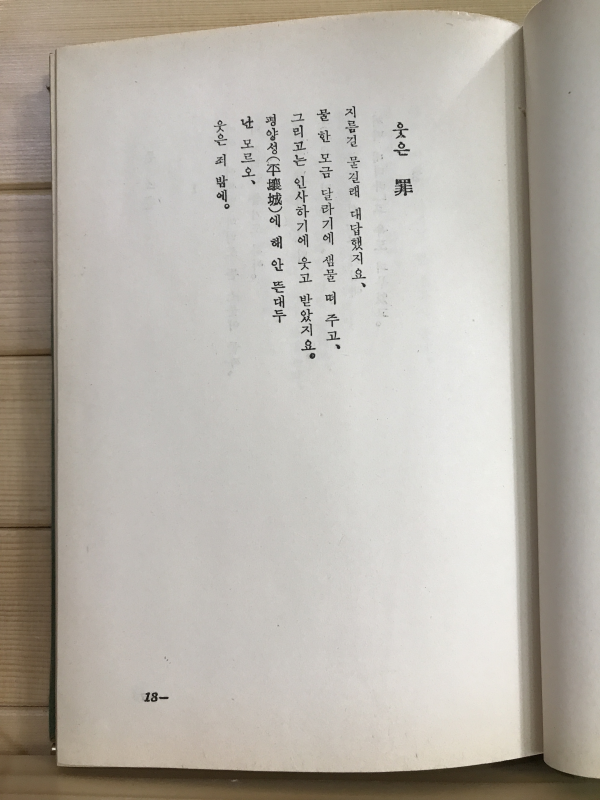 웃은 罪
지름길 묻길래 대답했지요、
물 한 모금 달라기에 샘물 떠 주고、
그리고는 인사하기에 웃고 받았지요。
평양성(平壤城)에 해 안 뜬대두
난 모르오、
웃은 죄 밖에。
13—